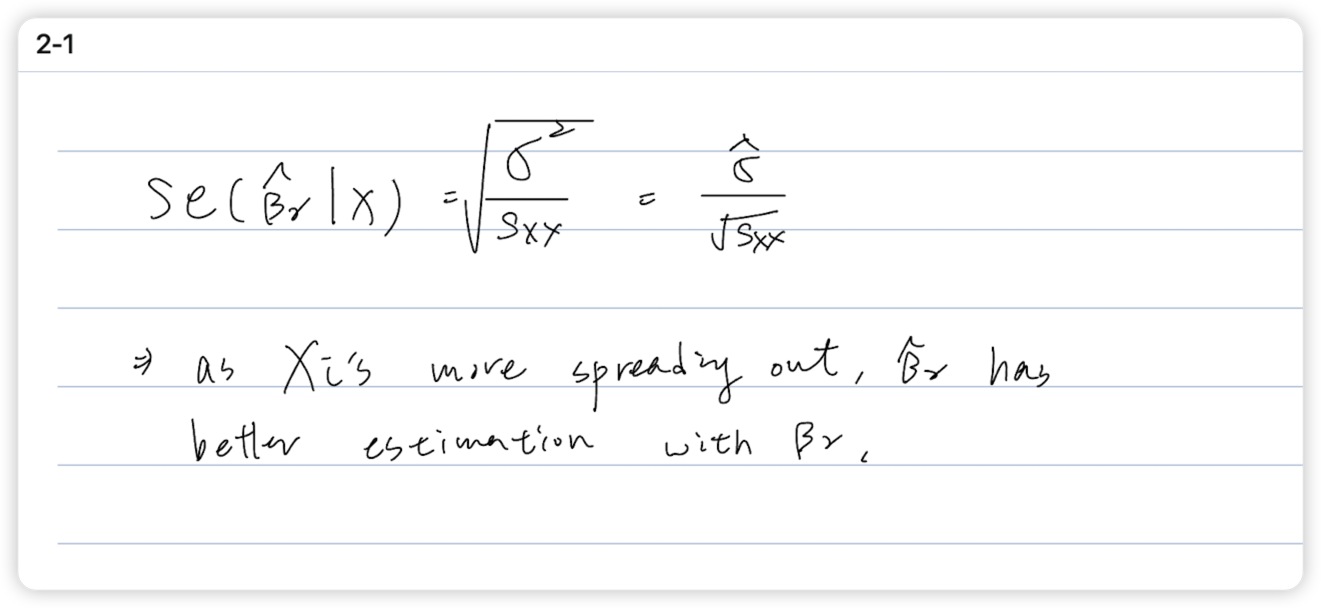 2-1
Se(β̂r|X) = √(σ²/Sxx) = σ̂/√Sxx
⇒ as Xi's more spreading out, β̂r has
better estimation with βr.